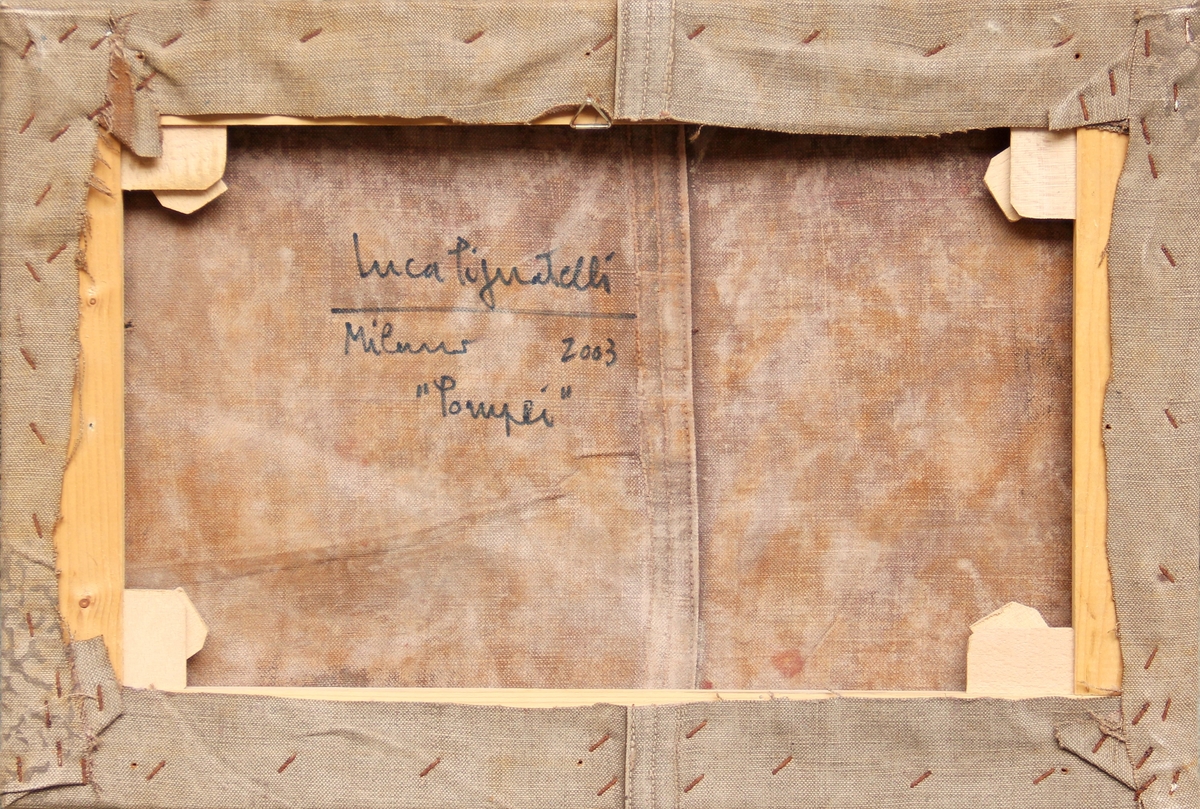 Luca Pignatelli
Milano 2003
"Pompei"